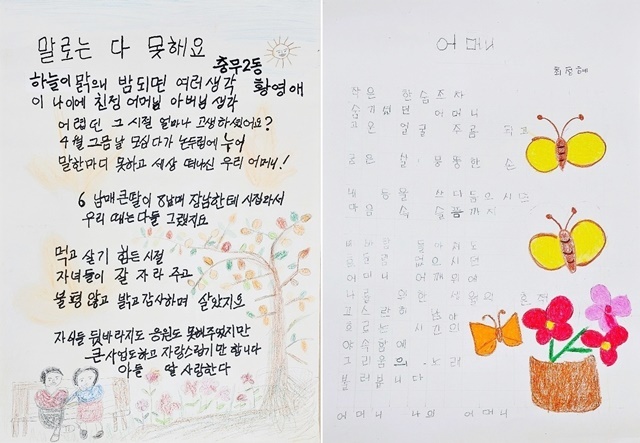 말로는 다 못해요
충무2동
황영애
하늘이 맑으니 밤되면 여러생각
이 나이에 친정 어머님 아버님 생각
어렵던 그 시절 얼마나 고생하셨어요?
4월 그믐날 모심다가 논두렁에 누어
말한마디 못하고 세상 떠나신 우리 어머니!
6남매 큰딸이 8남매 장남한테 시집와서
우리 때는 다들 그랬지요
먹고 살기 힘든 시절
자녀들이 잘 자라 주고
불평 않고 밝고 감사하며 살았지요
자식들 뒷바라지도 응원도 못해주었지만
큰 사업도하고 자랑스럽기만 합니다
아들 딸 사랑한다
어머니
작은 한숨조차
숨기셨던 어머니
고운 얼굴 주름 지고
굽은 철 뭉뚱한 손
마음 속 슬픔까지
어머니 어깨위에
나를 위한 생의 흔적
고스란히 남아
흐르는 시간의
야속함에
그리움의 노래
불러봅니다
어머니 나의 어머니